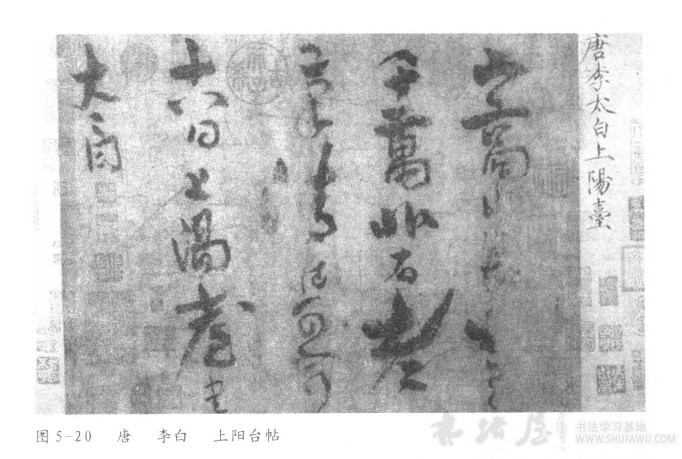 唐李太白上陽臺
山高水長物象
千萬非有老
筆清壯可窮
十八日上陽臺書
太白
图5-20 唐 李白 上阳台帖
书法屋
书法学习基地
WWW.SHUFAWU.COM